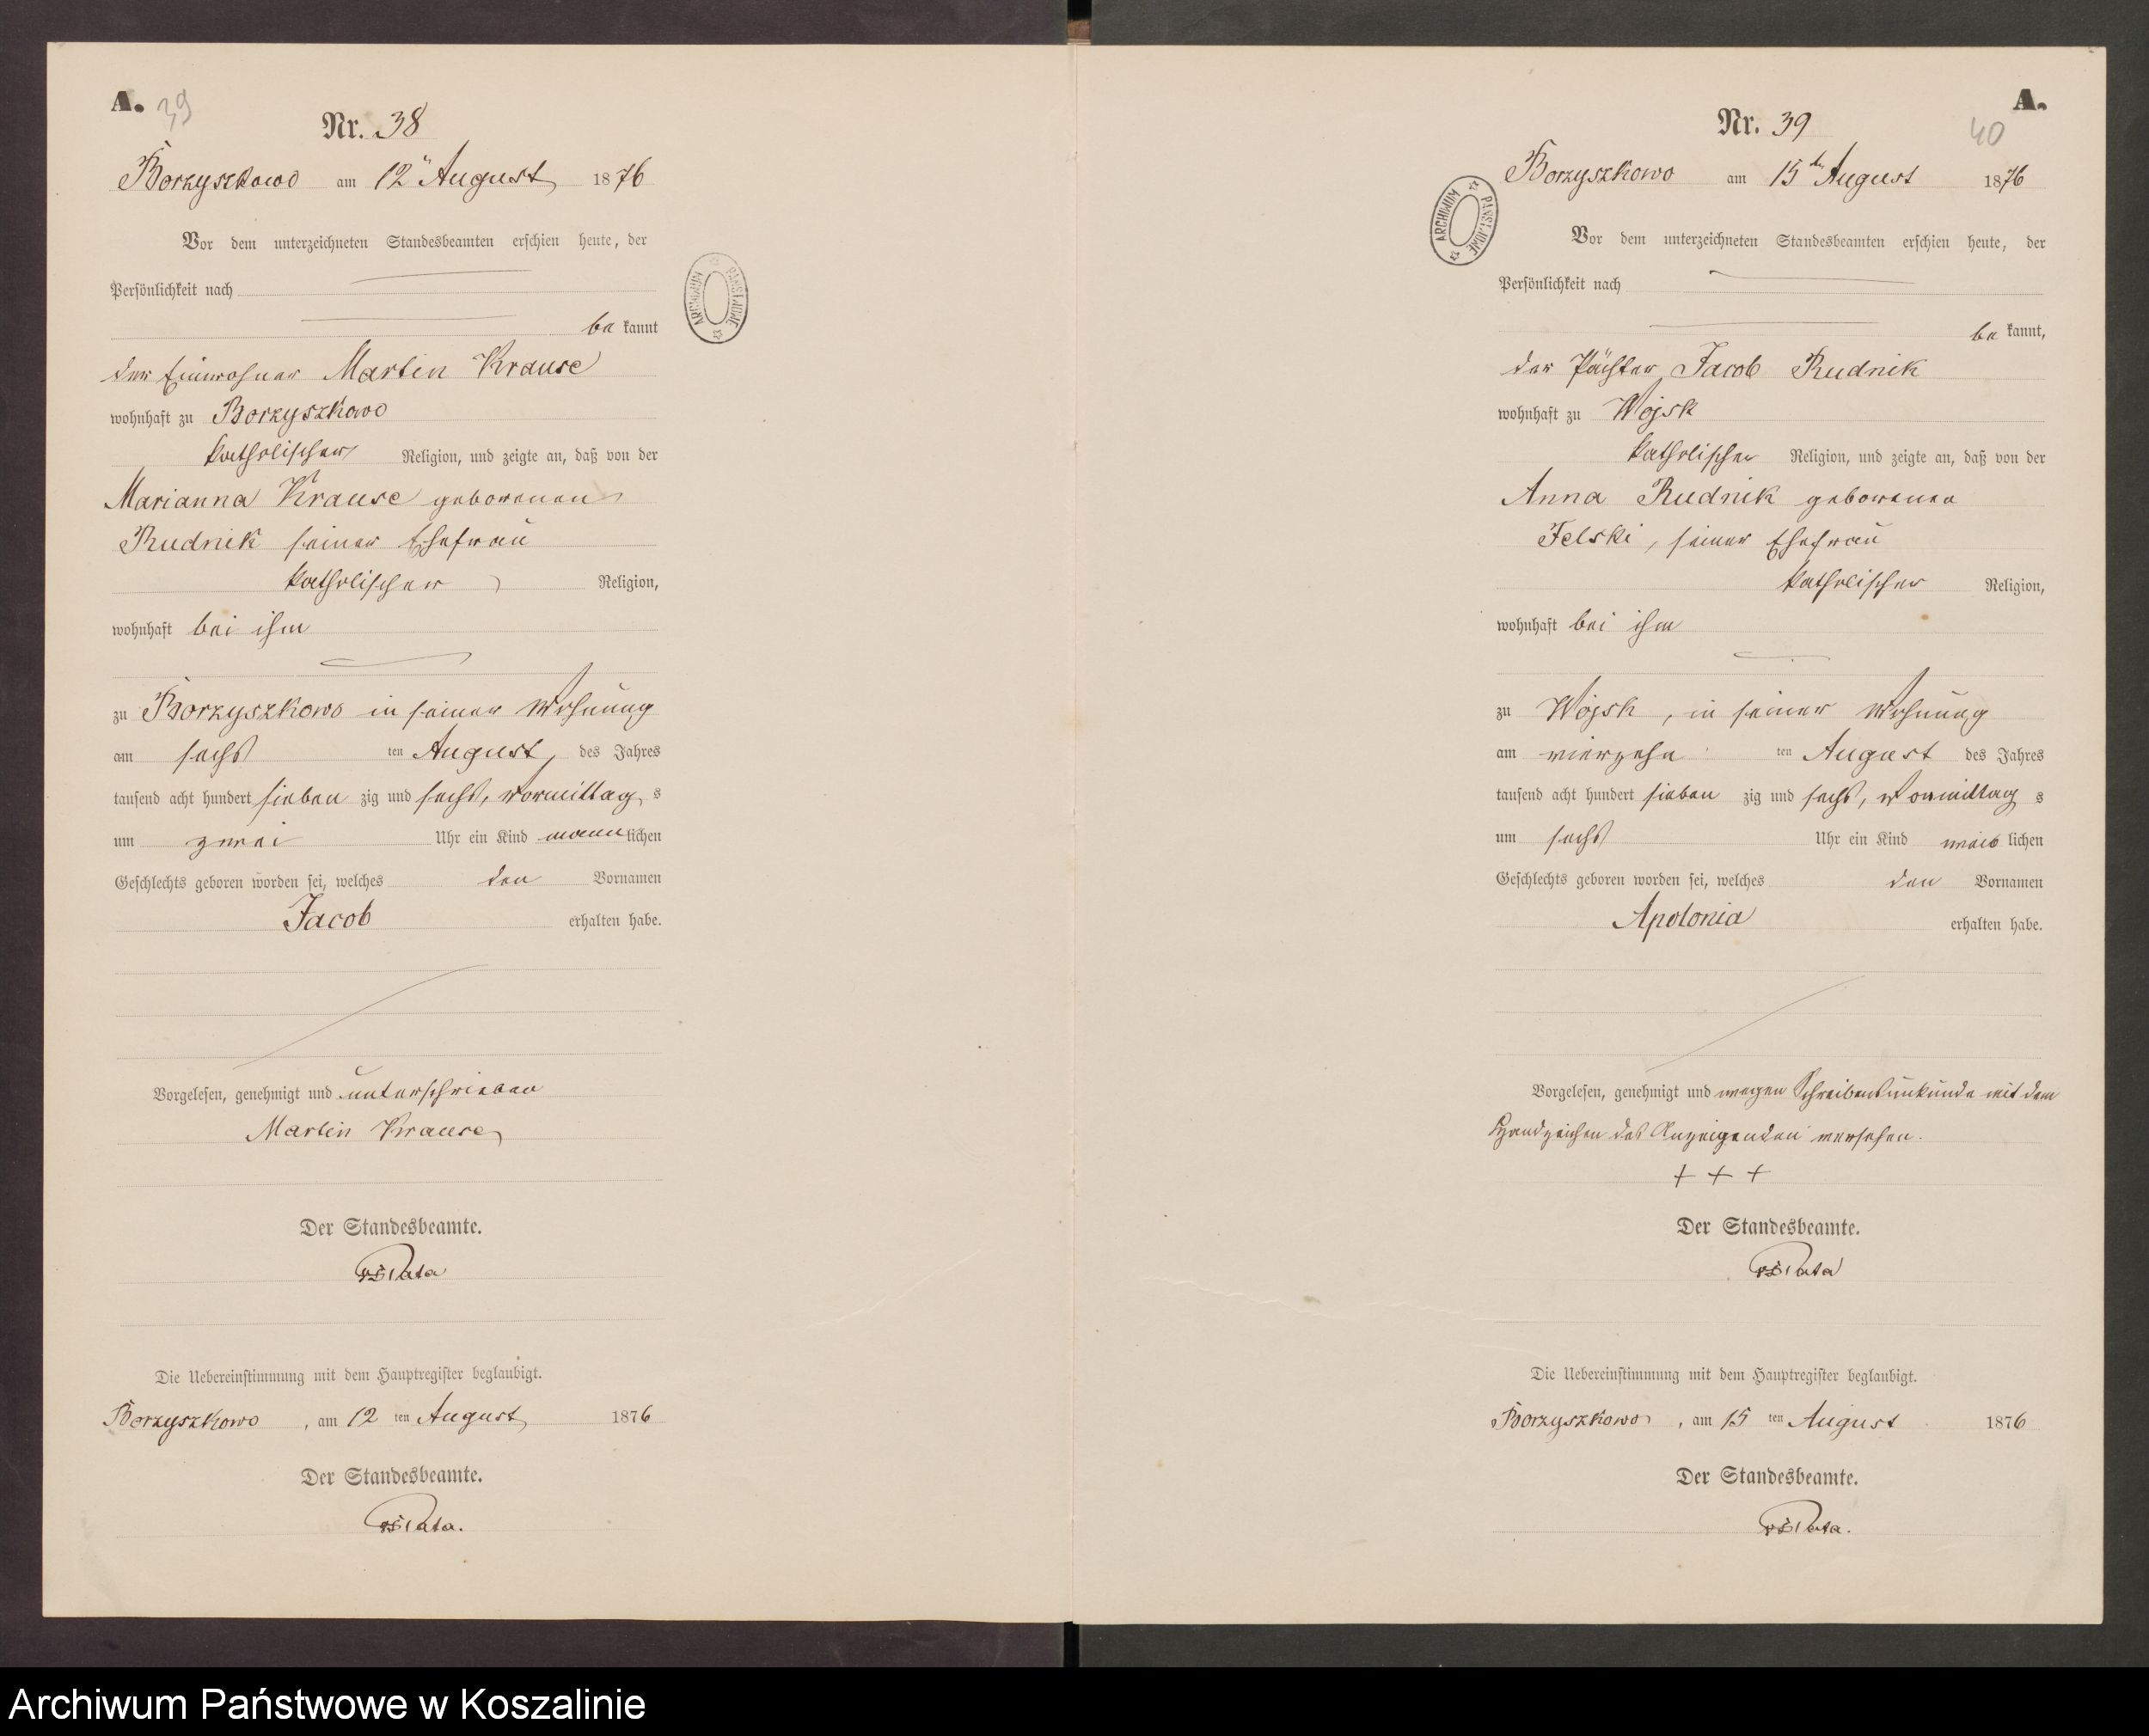 A. 39
Nr. 38
Borzyszkowo am 12ᵗ August 1876
Vor dem unterzeichneten Standesbeamten erschien heute, der
Persönlichkeit nach
be kannt
der Einwohner Martin Krause
wohnhaft zu Borzyszkowo
katholischer Religion, und zeigte an, daß von der
Marianna Krause geborenen
Rudnik seiner Ehefrau
katholischer Religion,
wohnhaft bei ihm
zu Borzyszkowo in seiner Wohnung
am sechs ten August des Jahres
tausend acht hundert sieben zig und sechs, vormittag s
um zwei Uhr ein Kind mann lichen
Geschlechts geboren worden sei, welches den Vornamen
Jacob erhalten habe.
Vorgelesen, genehmigt und unterschrieben
Martin Krause
Der Standesbeamte.
Die Uebereinstimmung mit dem Hauptregister beglaubigt.
Borzyszkowo, am 12 ten August 1876
Der Standesbeamte.
ARCHIWUM PAŃSTWOWE
A.
40
Nr. 39
Borzyszkowo am 15ten August 1876
Vor dem unterzeichneten Standesbeamten erschien heute, der
Persönlichkeit nach
be kannt,
der Pächter Jacob Rudnik
wohnhaft zu Wojsk
katholischer Religion, und zeigte an, daß von der
Anna Rudnik geborenen
Felski, seiner Ehefrau
katholischer Religion,
wohnhaft bei ihm
zu Wojsk, in seiner Wohnung
am vierzehn ten August des Jahres
tausend acht hundert sieben zig und sechs, vormittag s
um sechs Uhr ein Kind weib lichen
Geschlechts geboren worden sei, welches den Vornamen
Apolonia erhalten habe.
Vorgelesen, genehmigt und wegen Schreibensunkunde mit dem
Handzeichen des Anzeigenden versehen.
+ + +
Der Standesbeamte.
Die Uebereinstimmung mit dem Hauptregister beglaubigt.
Borzyszkowo, am 15 ten August 1876
Der Standesbeamte.
ARCHIWUM PAŃSTWOWE
Archiwum Państwowe w Koszalinie